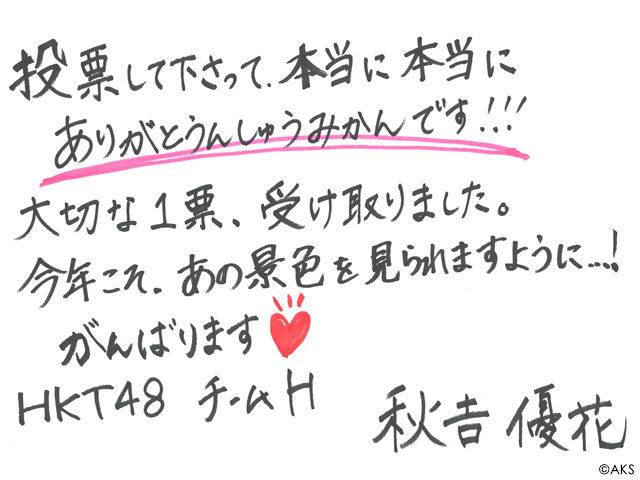 投票して下さって、本当に本当に
ありがとうんしゅうみかんです!!!
大切な1票、受け取りました。
今年こそ、あの景色を見られますように...!
がんばります
HKT48 チームH
秋吉 優花
©AKS